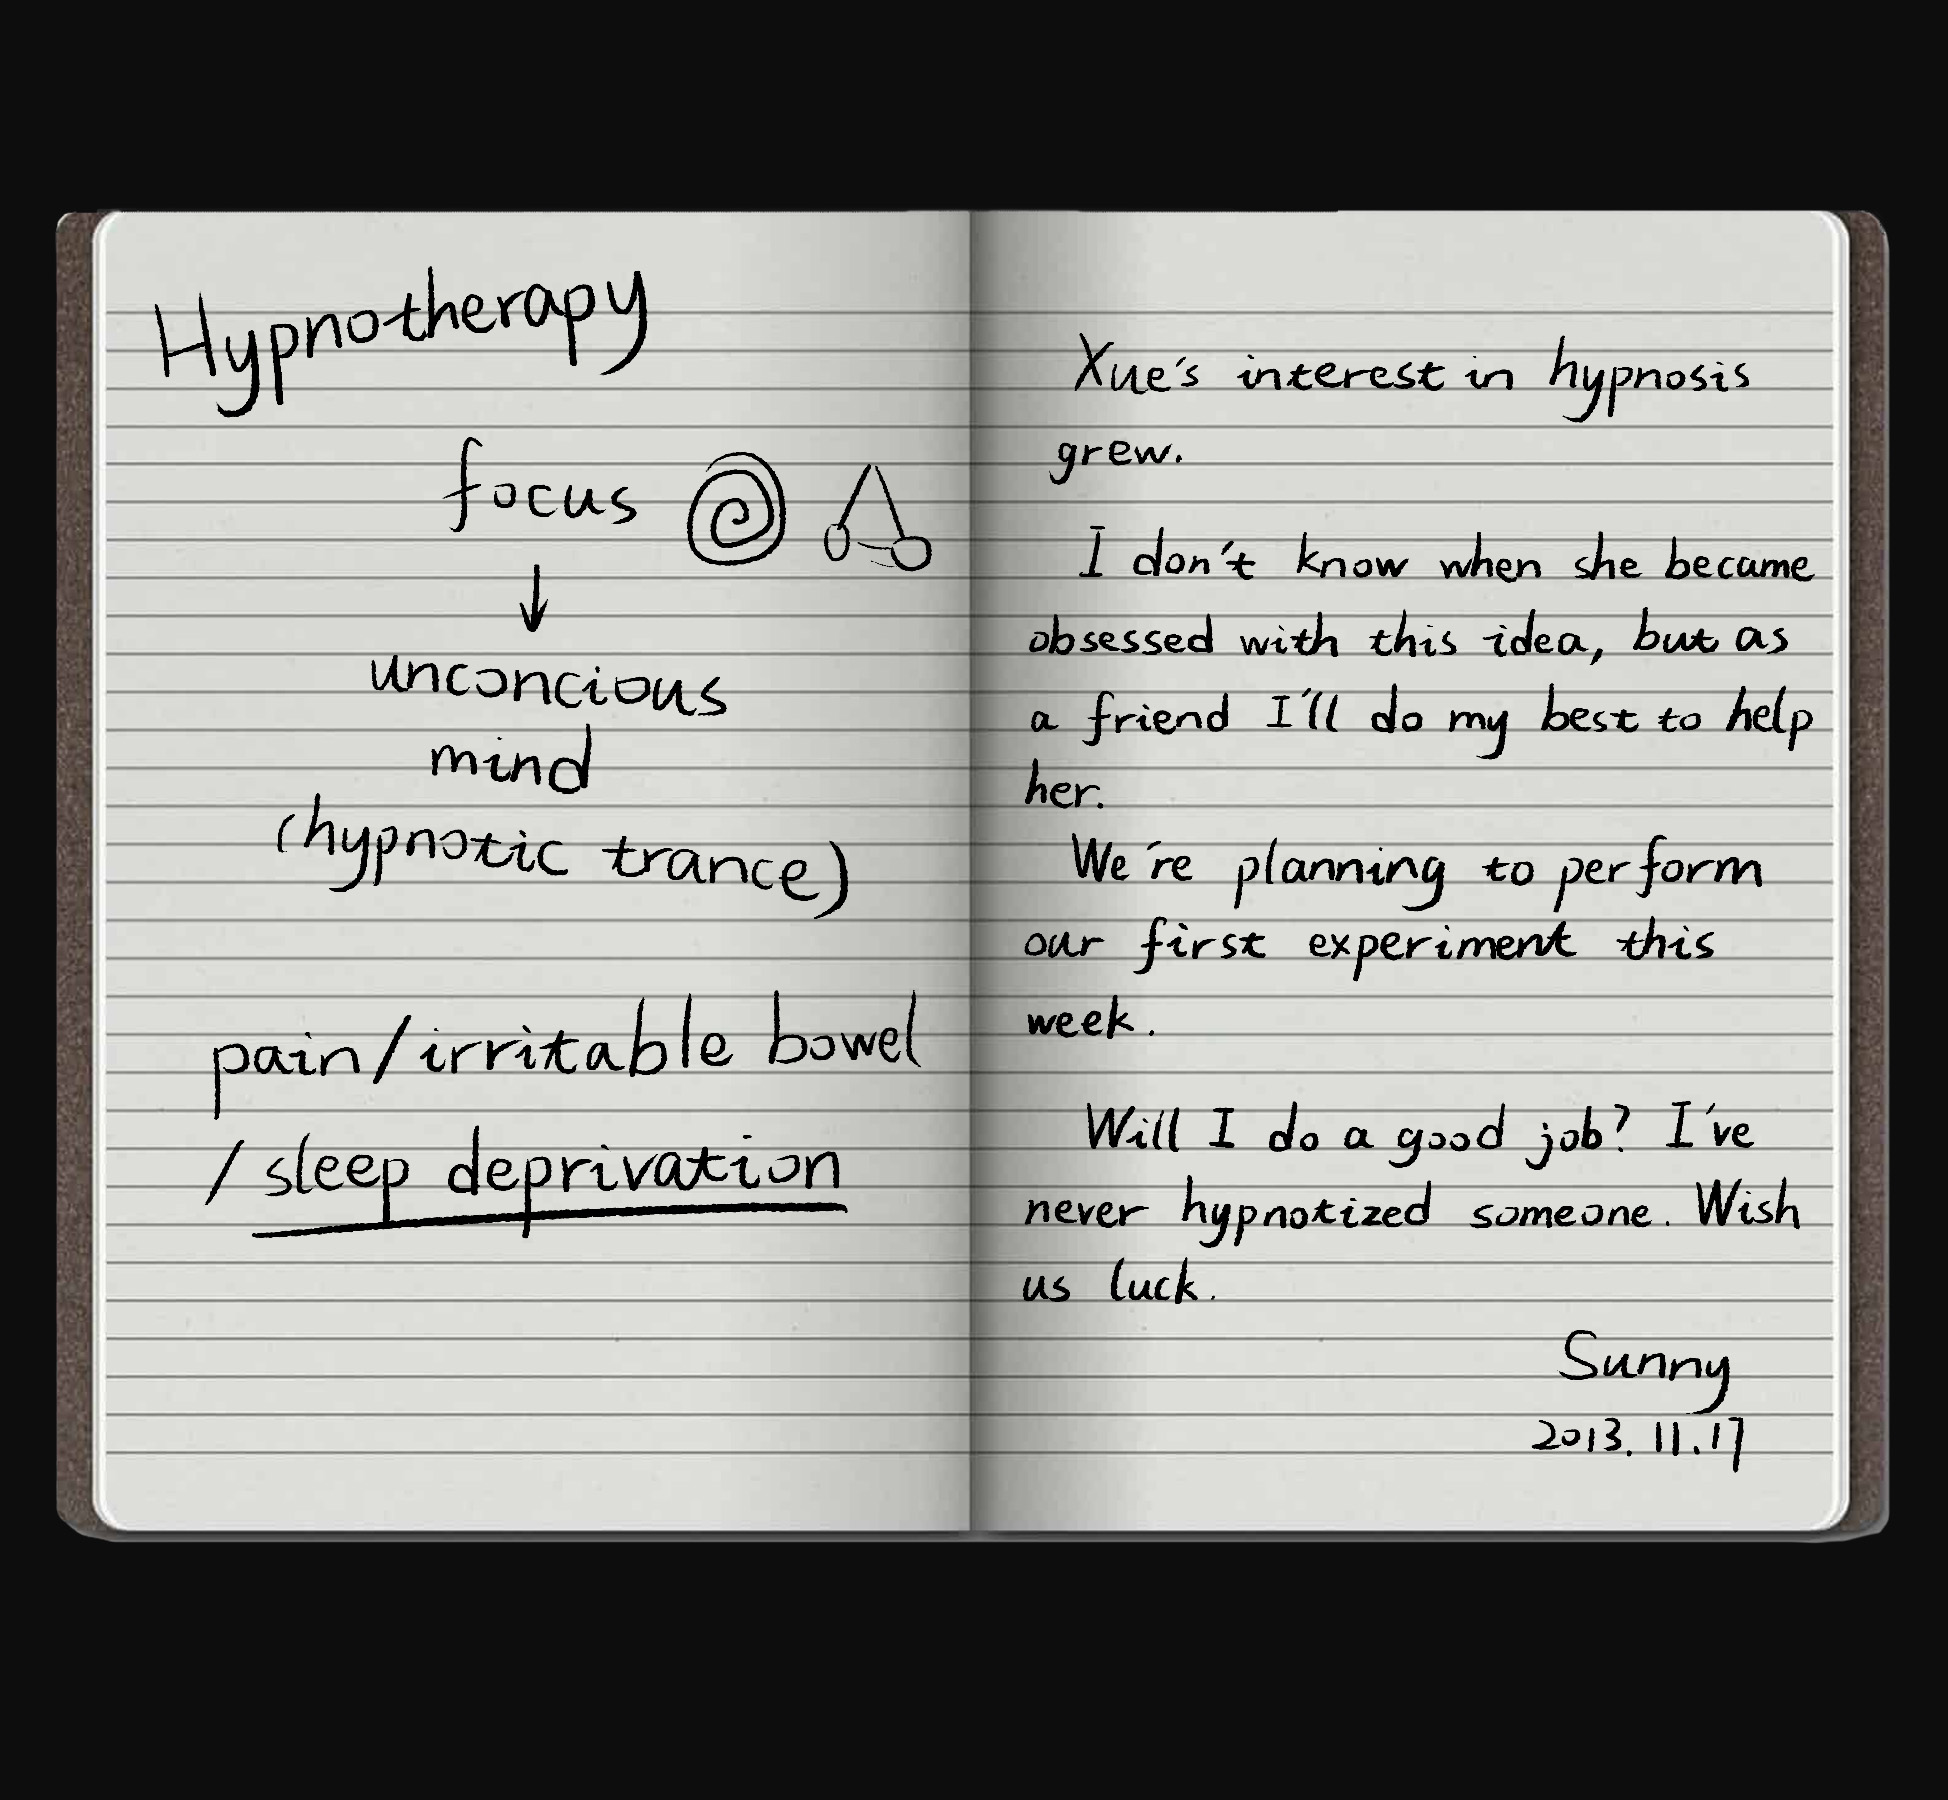 Hypnotherapy
focus
↓
unconcious
mind
(hypnotic trance)
pain/irritable bowel
/sleep deprivation
Xue's interest in hypnosis
grew.
I don't know when she became
obsessed with this idea, but as
a friend I'll do my best to help
her.
We're planning to perform
our first experiment this
week.
Will I do a good job? I've
never hypnotized someone. Wish
us luck.
Sunny
2013.11.17